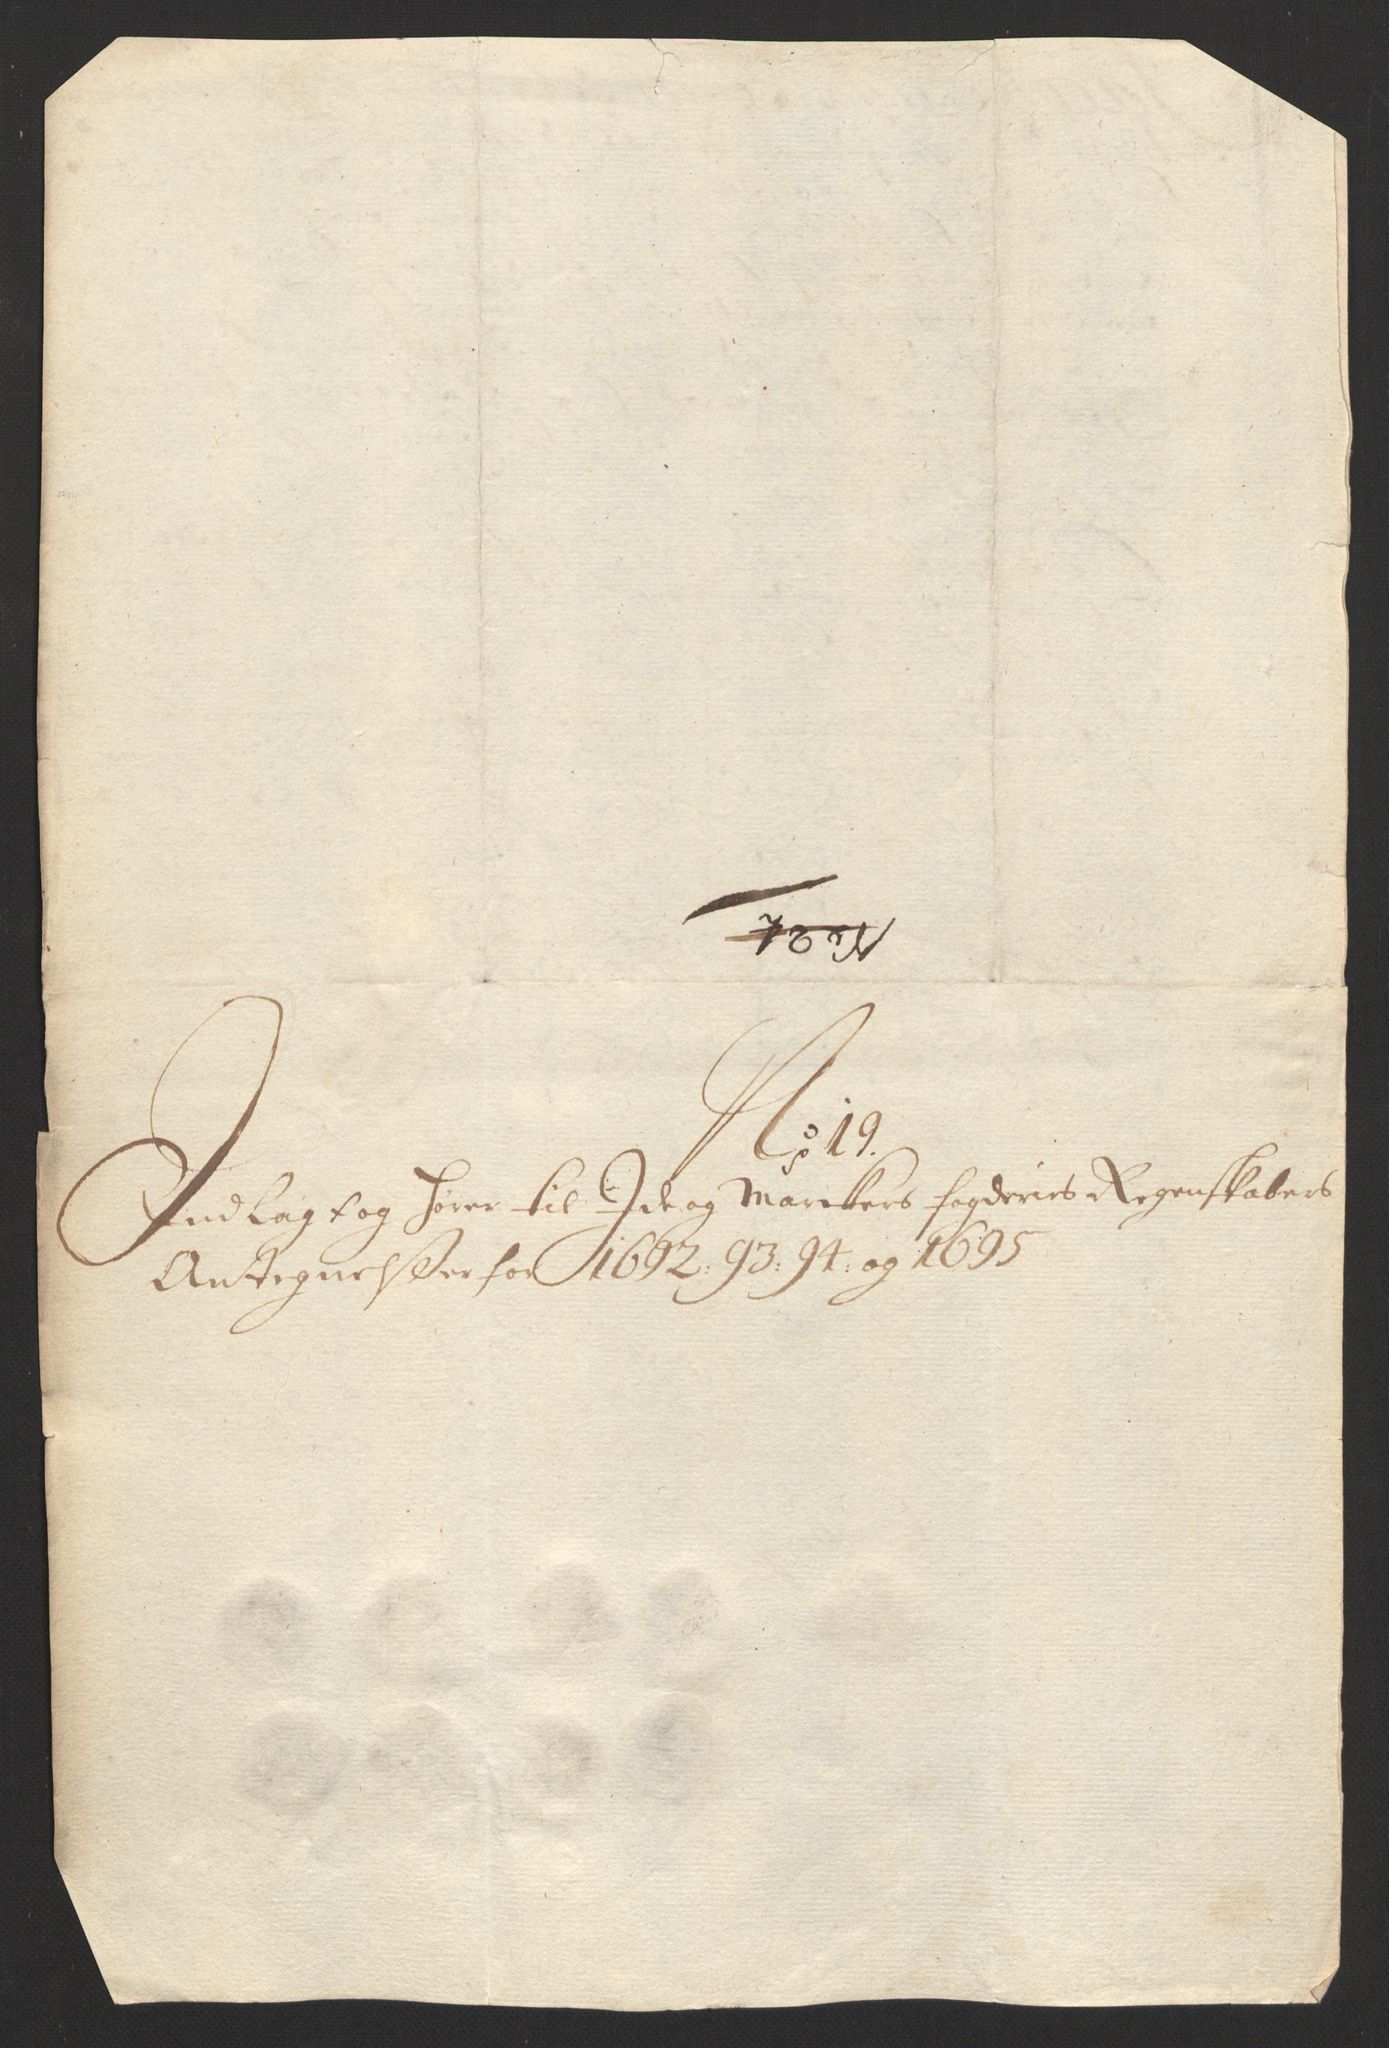 No 21
No 19.
Indlagt og hører til Ide og Marckers fogderies Regenskabers
Antegnelsser for 1692: 93: 94: og 1695